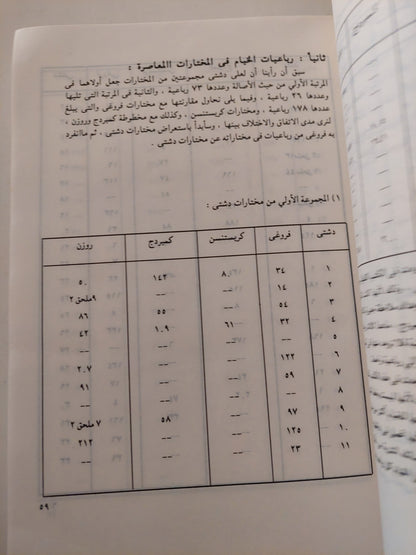 ثانياً : رباعيات الخيام فى المختارات المعاصرة :
سبق أن رأينا أن لعلى دشتى مجموعتين من المختارات جعل أولاهما فى
المرتبة الأولي من حيث الأصالة وعددها ٧٣ رباعية ، والثانية فى المرتبة التى تليها
وعددها ٢٦ رباعية ، وفيما يلى نحاول مقارنتها مع مختارات فروغى والتى يبلغ
عددها ١٧٨ رباعية ، ومختارات كريستنسن ، وكذلك مع مخطوطة كمبردج وروزن ،
لنرى مدى الاتفاق والاختلاف بينها ، وسأبدأ باستعراض مختارات دشتى ، ثم ماانفرد
به فروغى من رباعيات فى مختاراته عن مختارات دشتى .
١) المجموعة الأولي من مختارات دشتى :
دشتى فروغى كريستنسن كمبردج روزن
١ ٣٤ ٨٠ ١٤٣ ٥٠
٢ ١٤ -- -- ٩ملحق٢
٣ ٥٤ -- ٥٥ ٨٦
٤ ٣٢ ٦١ ١٠٩ ٤٢
٥ -- -- -- --
٦ ١٢٢ -- -- ٢٠٧
٧ ٥٩ -- -- ٩١
٨ -- -- -- --
٩ ٩٧ -- ٥٨ ٧ملحق٢
١٠ ١٢٥ -- -- ٢١٢
١١ ٢٣ -- -- --
٥٩